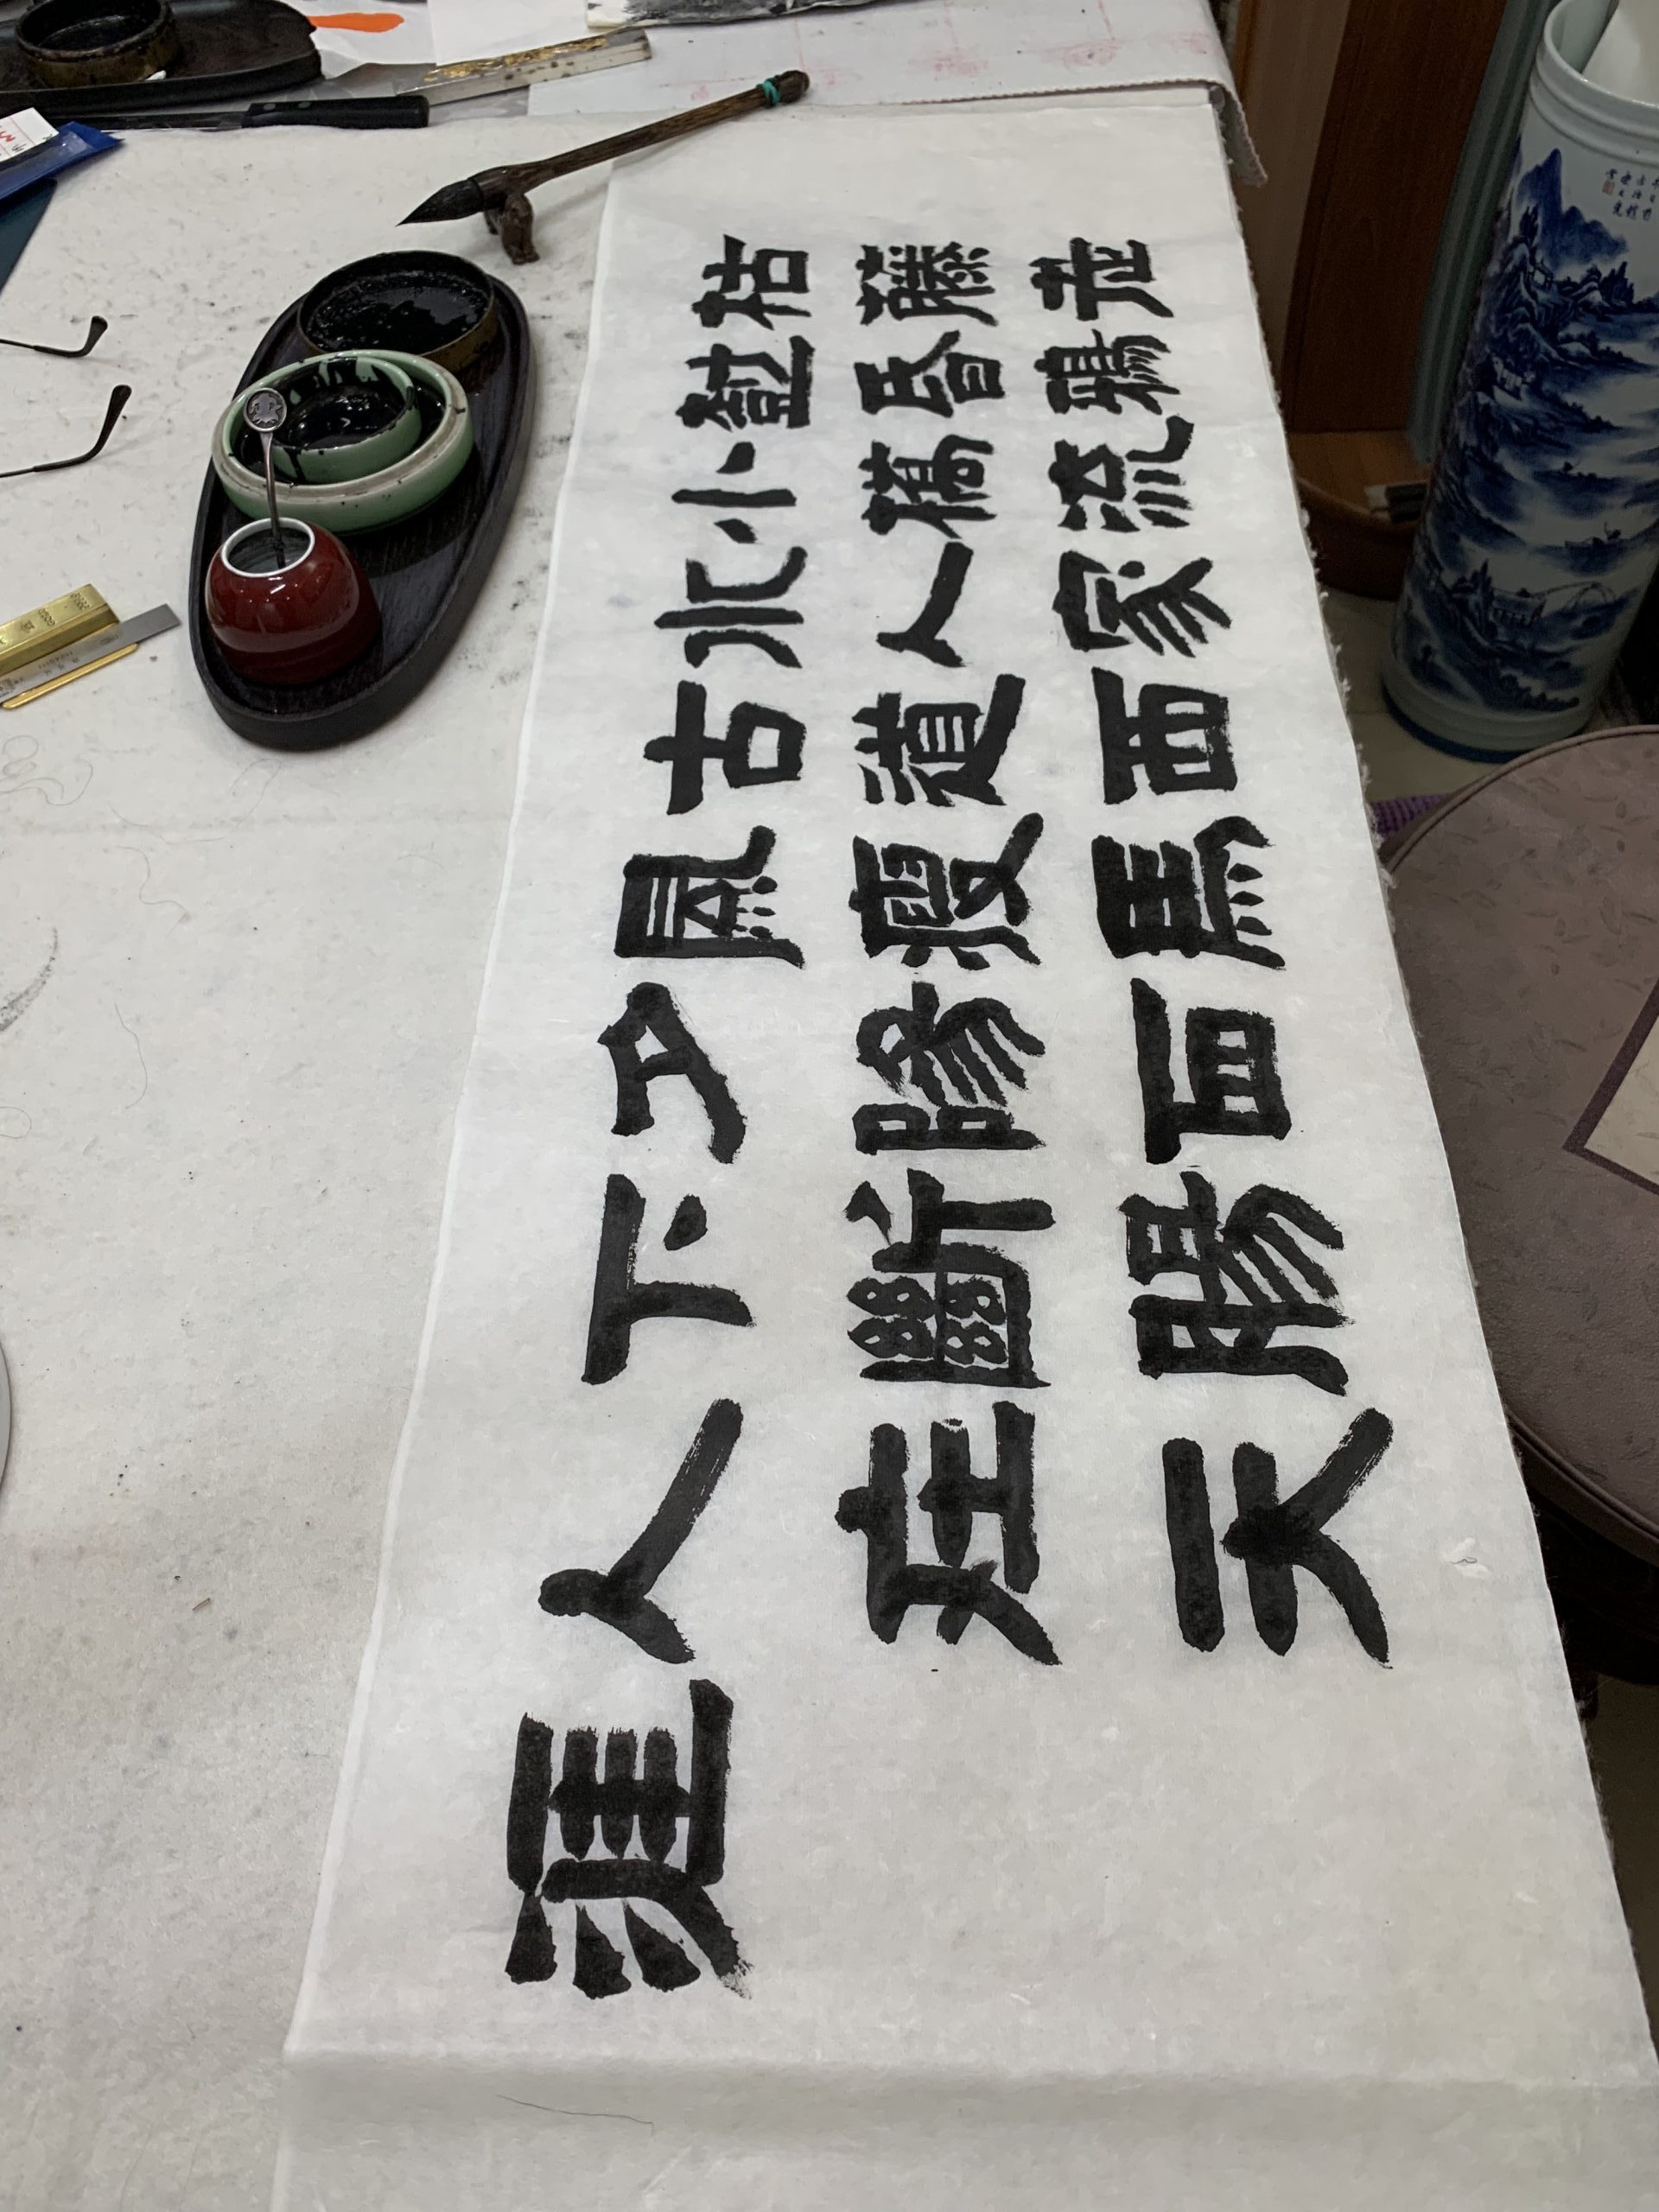 枯藤老
樹昏鴉
小橋流
水人家
古道西
風瘦馬
夕陽西
下斷腸
人在天
涯